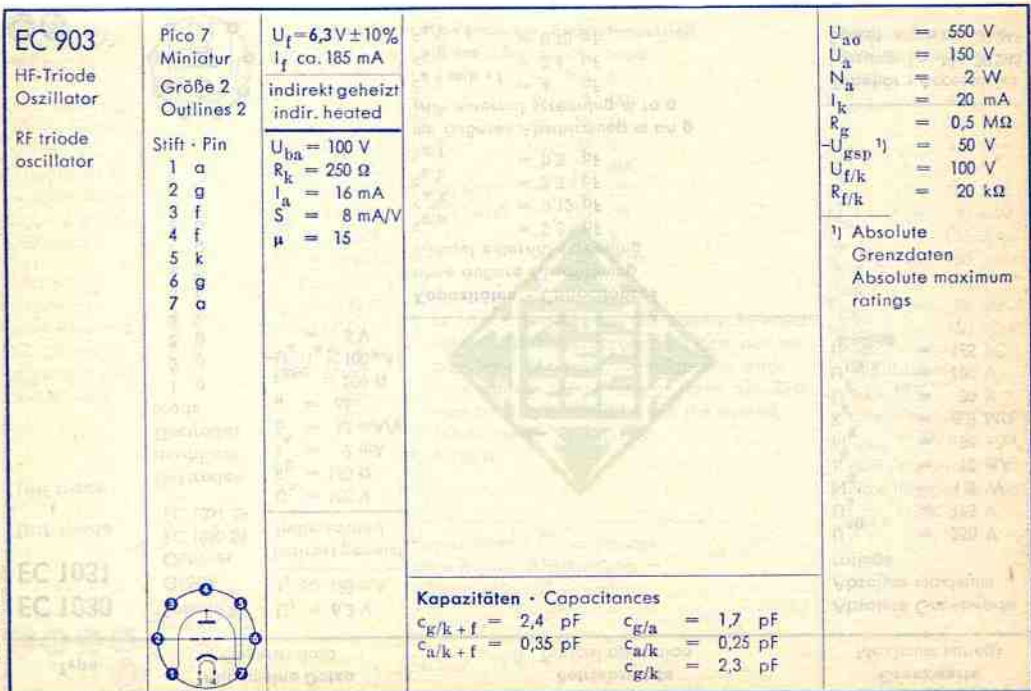 EC 903
HF-Triode
Oszillator
RF triode
oscillator
Pico 7
Miniatur
Größe 2
Outlines 2
Stift · Pin
1 a
2 g
3 f
4 f
5 k
6 g
7 a
U_f = 6,3 V ± 10%
I_f ca. 185 mA
indirekt geheizt
indir. heated
U_ba = 100 V
R_k = 250 Ω
I_a = 16 mA
S = 8 mA/V
μ = 15
Kapazitäten · Capacitances
c_g/k + f = 2,4 pF c_g/a = 1,7 pF
c_a/k + f = 0,35 pF c_a/k = 0,25 pF
c_g/k = 2,3 pF
U_ao = 550 V
U_a = 150 V
N_a = 2 W
I_k = 20 mA
R_g = 0,5 MΩ
–U_gsp ¹) = 50 V
U_f/k = 100 V
R_f/k = 20 kΩ
¹) Absolute
Grenzdaten
Absolute maximum
ratings
3 4 5
2 6
1 7